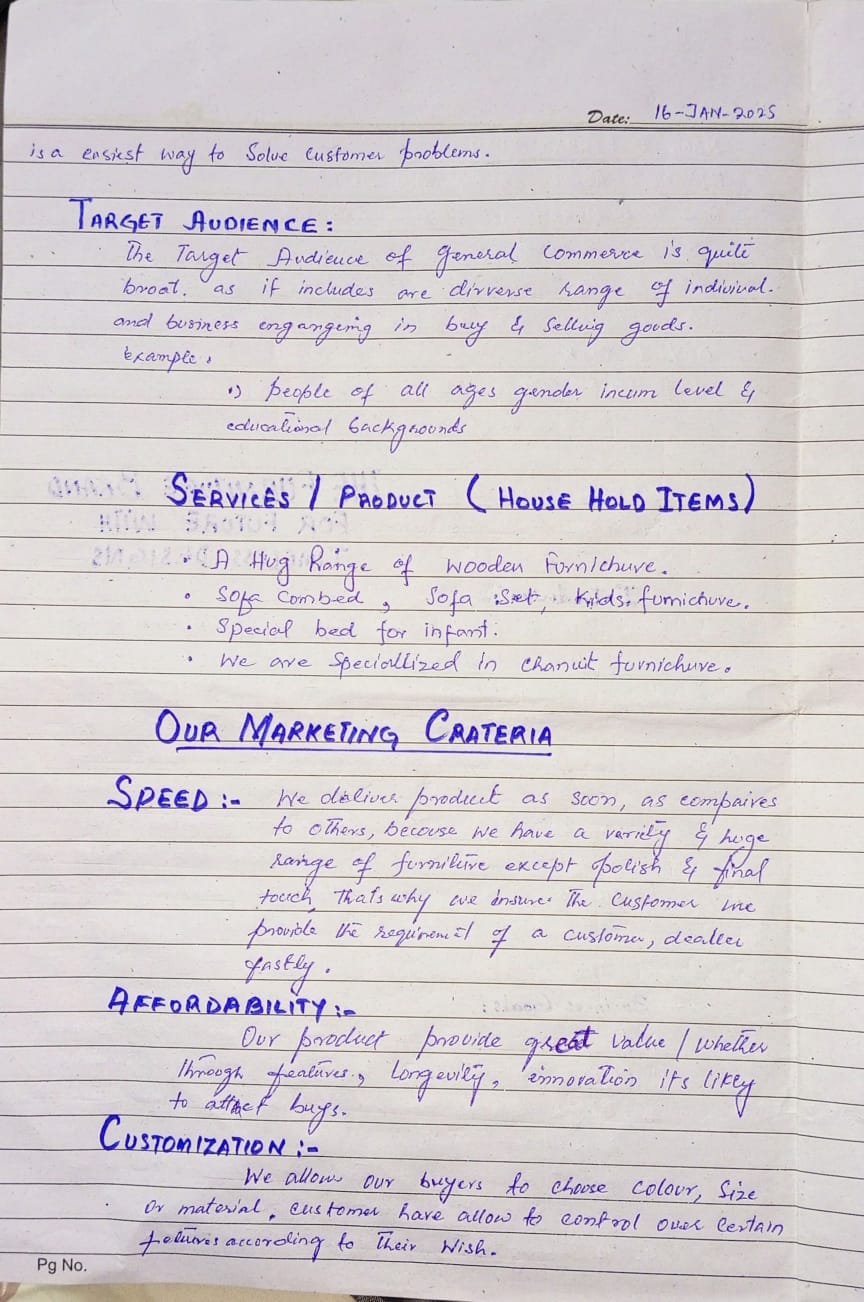 Date: 16-JAN-2025
is a easiest way to Solve Customer problems.
TARGET AUDIENCE:
The Target Audience of general Commerce is quite
broat. as if includes are dirverse range of indiviual.
and business engangeing in buy & Selling goods.
Example,
1) people of all ages gender incum level &
educational backgrounds
SERVICES / PRODUCT ( HOUSE HOLD ITEMS)
• A Hug Range of wooden Furnichure.
• Sofa Combed, Sofa Set, Kids furnichure.
• Special bed for infant.
• We are Speciallized in furnichure.
OUR MARKETING CRATERIA
SPEED :- We deliver product as soon, as compaires
to others, becouse we have a variety & huge
range of furniture except polish & final
touch, That's why we insure The Customer we
provide the requirement of a customer, dealler
fastly.
AFFORDABILITY :-
Our product provide great value / whether
through features, longevity, innovation its likely
to attract buys.
CUSTOMIZATION :-
We allow our buyers to choose Colour, Size
Or material, customer have allow to control over Certain
fetures according to Their Wish.
Pg No.